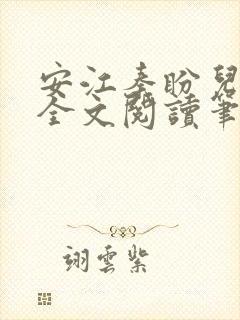 安江秦盼兒
全文閱讀筆
翊雲紫